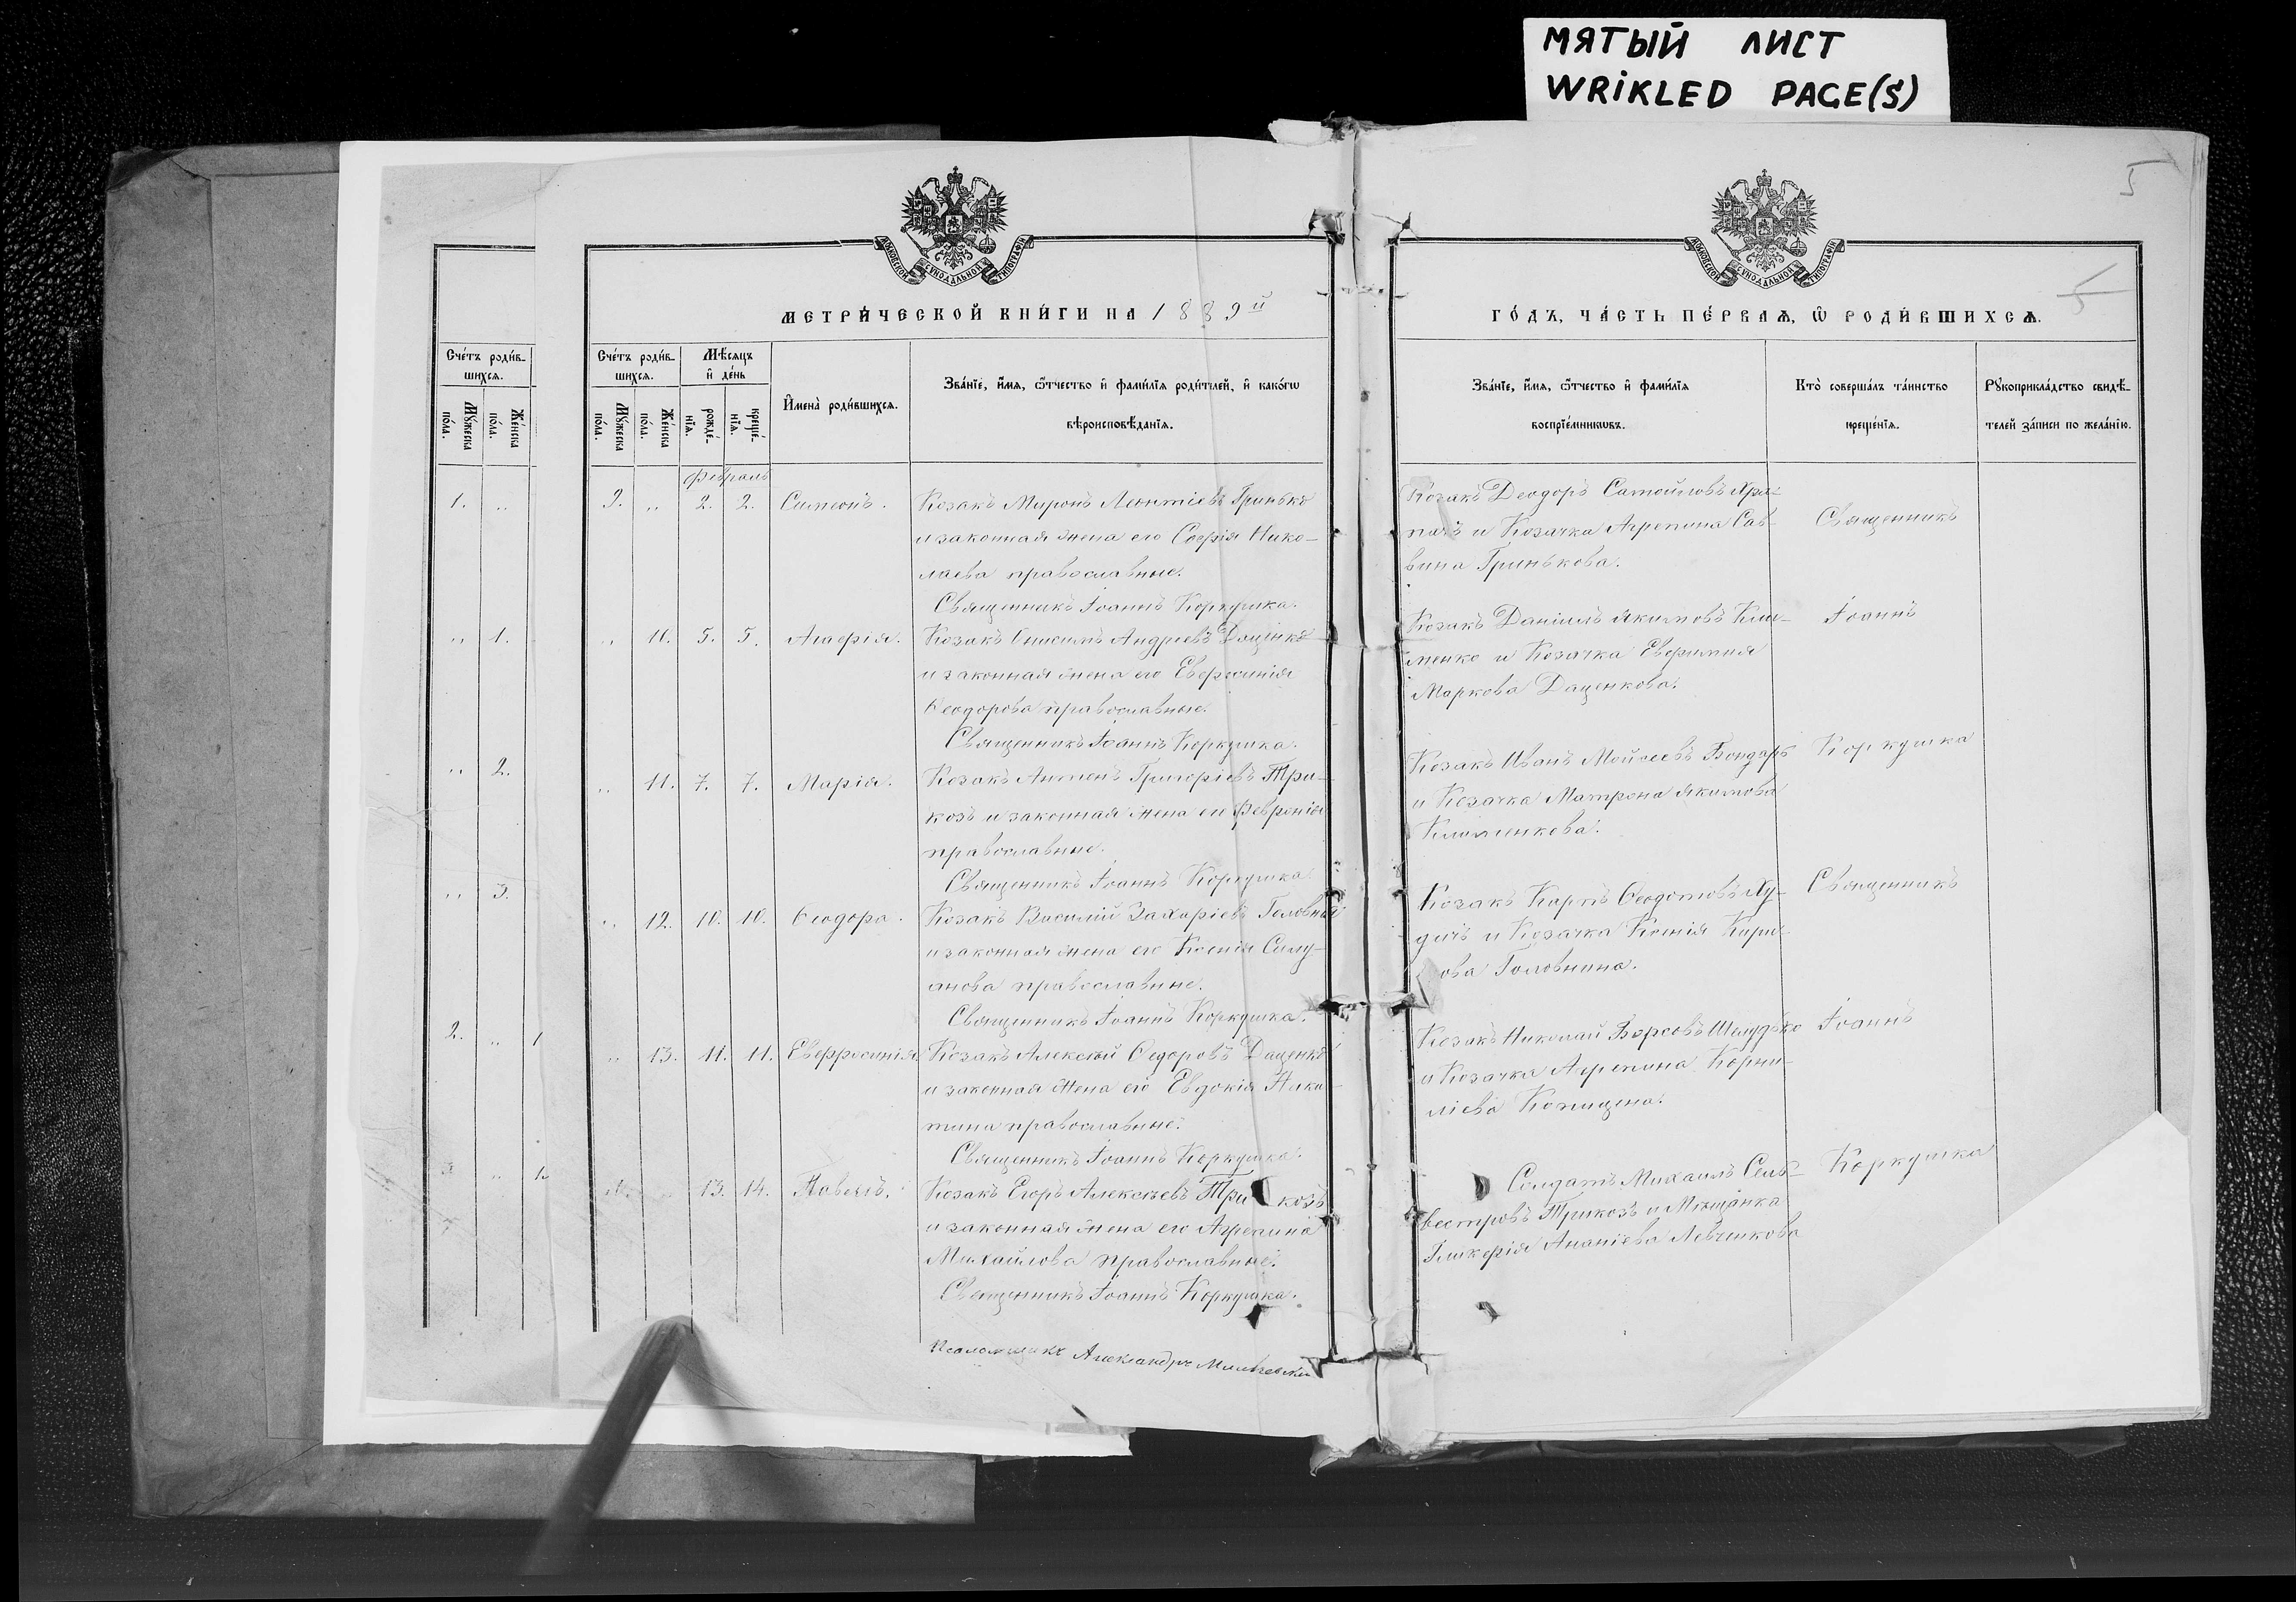 МЯТЫЙ ЛИСТ
WRiKLED PAGE(S)
5
МОСКОВСКОЙ СУНОДАЛЬНОЙ ТИПОГРАФІИ
МОСКОВСКОЙ СУНОДАЛЬНОЙ ТИПОГРАФІИ
МЕТРИ́ЧЕСКОЙ КНИ́ГИ НА 1889й
ГО́ДЪ, ЧА́СТЬ ПЕ́РВАѦ, Ѿ РОДИ́ВШИХСѦ.
5
Сче́тъ роди́в-
шихсѧ.
Мꙋ́жеска по́ла.
Же́нска по́ла.
Сче́тъ роди́в-
шихсѧ.
Мꙋ́жеска по́ла.
Же́нска по́ла.
Мѣ́сѧцъ
и҆ де́нь
рожде́-
нїѧ.
креще́-
нїѧ.
И҆мена̀ роди́вшихсѧ.
Зва́нїе, и҆́мѧ, ѻ҆́тчество и҆ фами́лїѧ роди́телей, и҆ како́гѡ
вѣроисповѣ́данїѧ.
Зва́нїе, и҆́мѧ, ѻ҆́тчество и҆ фами́лїѧ
воспрїе́мникѡвъ.
Кто̀ соверша́лъ та́инство
креще́нїѧ.
Рꙋкоприкла́дство свидѣ́-
телей за́писи по жела́нїю.
1. „
„ 1.
„ 2.
„ 3.
2. „ 1
3 „ 1
Февраль
9. „ 2. 2. Симеонъ. Козакъ Миронъ Леонтіевъ Гринько
и законная жена его Софія Нико-
лаева православные.
Священникъ Іоаннъ Коркушка.
Козакъ Ѳеодоръ Самойловъ Хра-
пачъ и Козачка Агрепина Сав-
вина Гринькова.
Священникъ
„ 10. 5. 5. Агафія. Козакъ Онисимъ Андреевъ Даценко
и законная жена его Евфросинія
Ѳеодорова православные.
Священникъ Іоаннъ Коркушка.
Козакъ Даніилъ Якимовъ Кли-
менко и Козачка Евфимия
Маркова Даценкова.
Іоаннъ
„ 11. 7. 7. Марія. Козакъ Антонъ Григоріевъ Три-
козъ и законная жена его Февронія
православные.
Священникъ Іоаннъ Коркушка
Козакъ Иванъ Мойсеевъ Бондарь
и Козачка Матрона Якимова
Клименкова.
Коркушка
„ 12. 10. 10. Ѳеодора. Козакъ Василий Захаріевъ Головня
и законная жена его Ксенія Силу-
анова православные.
Священникъ Іоаннъ Коркушка.
Козакъ Карпъ Ѳеодотовъ Ху-
дичъ и Козачка Ксенія Кири
ова Головнина.
Священникъ
„ 13. 11. 11. Евфросинія Козакъ Алексѣй Ѳедоровъ Даценко
и законная жена его Евдокія Ники-
тина православные.
Священникъ Іоаннъ Коркушка.
Козакъ Николай Шелудько
и Козачка Агрепина Корни-
ліева
Іоаннъ
13. 14. Павелъ. Козакъ Егоръ Алексѣевъ Три козъ
и законная жена его Агрепина
Михайлова православные.
Священникъ Іоаннъ Коркушка.
Солдатъ Михаилъ Силь-
вестровъ Трикозъ и Мѣщанка
Гликерія Ананіева Левченкова
Коркушка
Псаломщикъ Александръ